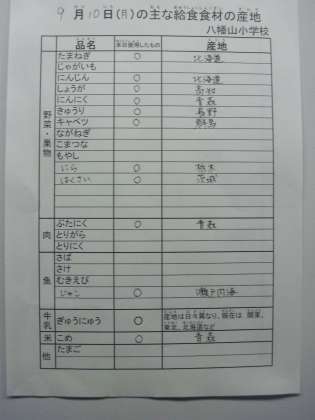 9月10日(月)の主な給食食材の産地
八幡山小学校
品名 本日使用したもの 産地
野菜・果物
たまねぎ ○ 北海道
じゃがいも
にんじん ○ 北海道
しょうが ○ 高知
にんにく ○ 青森
きゅうり ○ 長野
キャベツ ○ 群馬
ながねぎ
こまつな
もやし
にら ○ 栃木
はくさい ○ 茨城
肉
ぶたにく ○ 青森
とりがら
とりにく
魚
さば
さけ
むきえび
ジャコ ○ 瀬戸内海
牛乳 ぎゅうにゅう ○ 産地は日々異なり、現在は、関東、
東北、北海道など
米 こめ ○ 青森
他 たまご